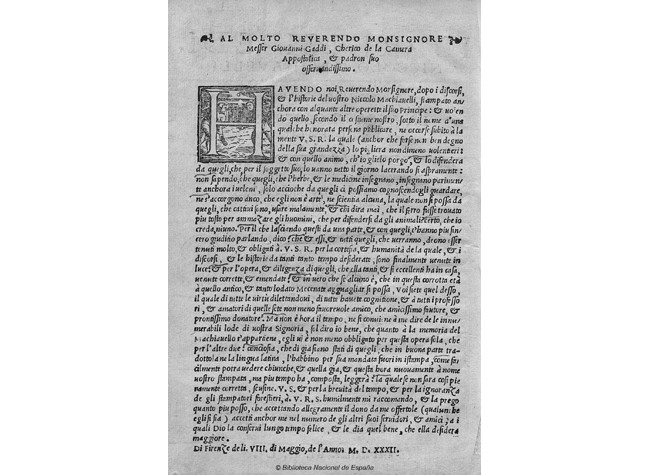 AL MOLTO REVERENDO MONSIGNORE
Messer Giovanni Gaddi, Cherico de la Camera
Appostolica, & padron suo
osservandissimo.
HAVENDO noi, Reverendo Monsignore, dopo i discorsi,
& l'historie del vostro Niccolo Machiavelli, stampato an
chora con alquante altre operette il suo Principe: & vo'en
do quello, secondo il costume nostro, sotto il nome d'una
qualche honorata persona publicare, ne occorse subito à la
mente V. S. R. la quale (anchor che forse non ben degno
della sua grandezza) lo piglierà nondimeno volentieri:
& con quello animo, ch'io glielo porgo, & lo difenderà
da quegli, che per il soggetto suo, lo vanno tutto il giorno lacerando si aspramente:
non sapendo, che quegli, che l'herbe, & le medicine insegnano, insegnano parimente
te anchora i veleni, solo accioche da quegli ci possiamo cognoscendogli guardare,
ne s'accorgono anco, che egli non è arte, ne scientia alcuna, la quale non si possa da
quegli, che cattivi sono, usare malamente, & chi dira mai, che il ferro fusse trovato
piu tosto per ammazzare gli huomini, che per difendersi da gli animali? certo, che io
creda, niuno. Per il che lasciendo questi da una parte, & con quegli, c'hanno piu sin
cero giudicio parlando, dico che & essi, & tutti quegli, che verranno, dranno esser
tenuti molto, & obligati à V. S. R. per la cortesia, & humanità de la quale, & i
discorsi, & le historie da tanti tanto tempo desiderate, sono finalmente venute in
luce: & per l'opera, & diligenza di quegli, che ella tanti, & si eccellenti ha in casa,
venute corrette, & emendate: & in vero che se alcuno è, che in questa corrotta età
à quello antico, & tanto lodato Mecenate agguagliar si possa, Voi siete quel desso,
il quale di tutte le virtù dilettandovi, di tutti havete cognitione, & à tutti i professo
ri, & amatori di quelle sete non meno favorevole amico, che amicissimo fautore, &
prontissimo donatore. Ma non è hora il tempo, ne si convien à me dire de le innu-
merabili lode di vostra Signoria, sol diro io bene, che quanto à la memoria del
Machiavello s'appartiene, egli vi è non meno obbligato per questa opera sola, che
per l'altre due: conciosia, che di gia siano stati di quegli, che in buona parte tra-
dottola ne la lingua latina, l'habbino per sua mandato fuori in istampa, come fa-
cilmente potrà vedere chiunche, & quella gia, & questa hora nuovamente à nome
vostro stampata, ma piu tempo ha, composta, leggerà: la quale se non sara cosi pie
namente corretta, scusine V. S. & per la brevità del tempo, & per la ignoranza
de gli stampatori forestieri, à V. R. S. humilmente mi raccomando, & la prego
quanto piu posso, che accettando allegramente il dono da me offertole (qualunche
egli si sia) accetti anchor me nel numero de gli altri suoi servidori, & amici; à i
quali Dio la conservi lungo tempo felice, & le dia quel bene, che ella desidera
maggiore.
Di Firenze de li. VIII, di Maggio, de l'Anno. M. D. XXXII.
© Biblioteca Nacional de España